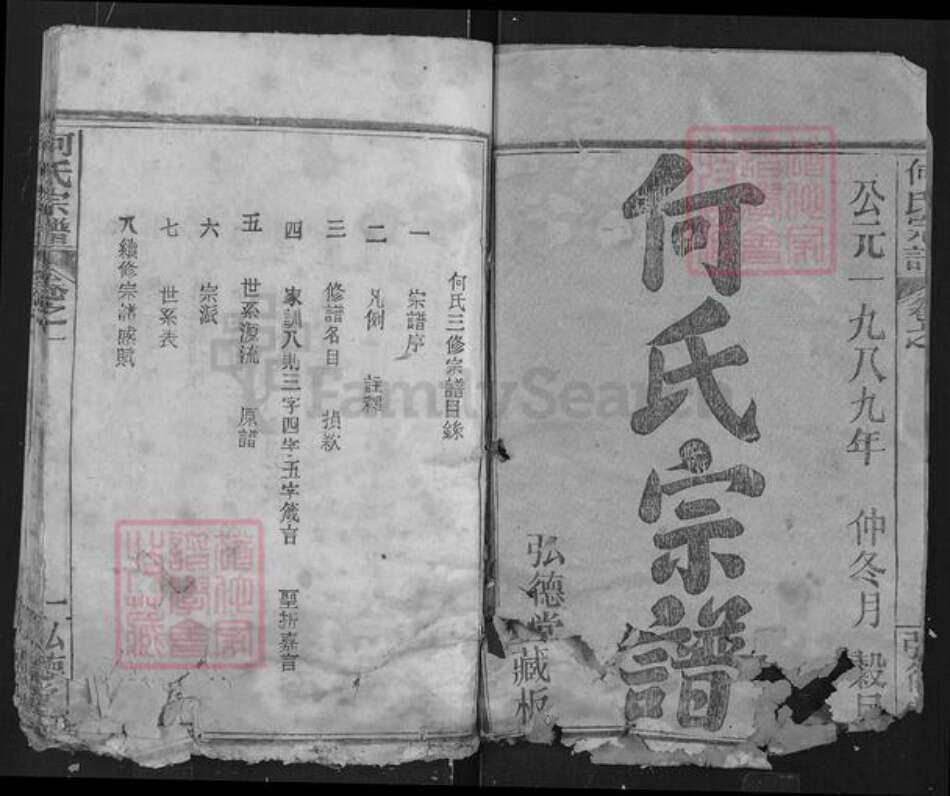 何氏宗譜
卷之
公元一九八九年 仲冬月 穀旦
何氏宗譜
弘德堂藏板
何氏三修宗譜目錄
一 宗譜序
二 凡例 註釋
三 修譜名目 損欵
四 家訓八則三字四字五字箴言 聖折嘉言
五 世系源流 原譜
六 宗派
七 世系表
八 續修宗譜感賦
何氏宗譜
卷之一
一
弘德
FamilySearch